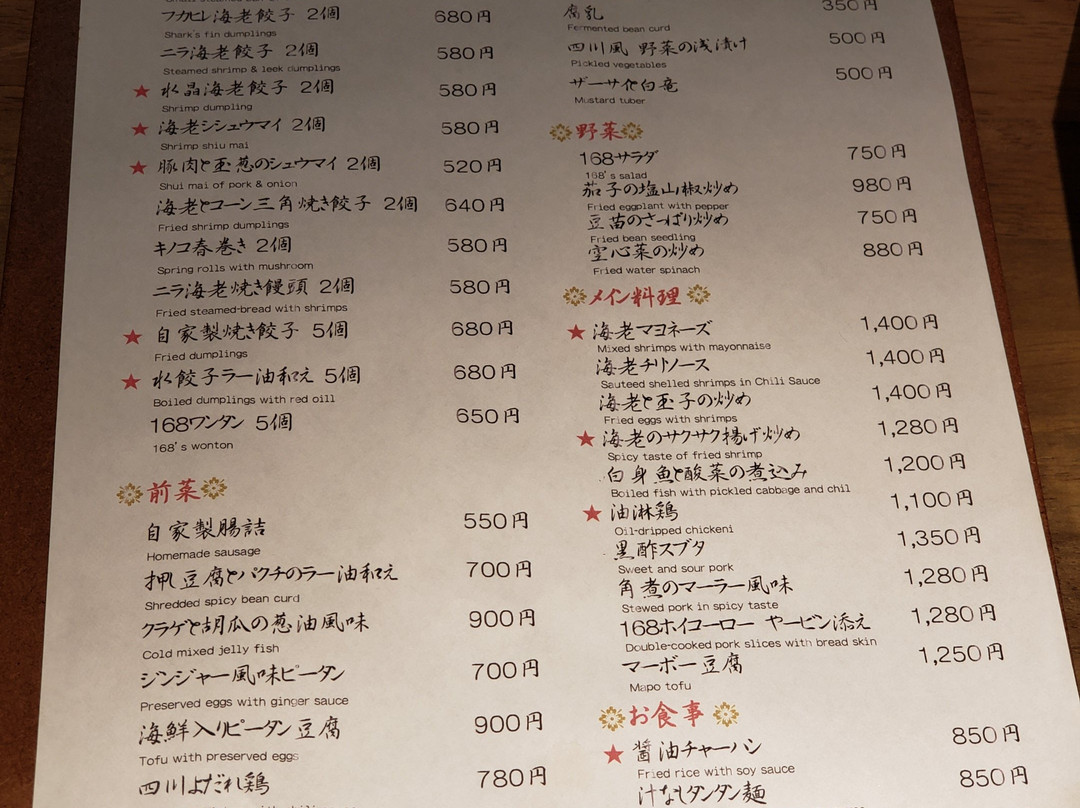 フカヒレ海老餃子 2個 680円
Shark's fin dumplings
ニラ海老餃子 2個 580円
Steamed shrimp & leek dumplings
★ 水晶海老餃子 2個 580円
Shrimp dumpling
★ 海老シシュウマイ 2個 580円
Shrimp shiu mai
★ 豚肉と玉葱のシュウマイ 2個 520円
Shui mai of pork & onion
海老とコーン三角焼き餃子 2個 640円
Fried shrimp dumplings
キノコ春巻き 2個 580円
Spring rolls with mushroom
ニラ海老焼き饅頭 2個 580円
Fried steamed-bread with shrimps
★ 自家製焼き餃子 5個 680円
Fried dumplings
★ 水餃子ラー油和え 5個 680円
Boiled dumplings with red oill
168ワンタン 5個 650円
168's wonton
前菜
自家製腸詰 550円
Homemade sausage
押し豆腐とパクチのラー油和え 700円
Shredded spicy bean curd
クラゲと胡瓜の葱油風味 900円
Cold mixed jelly fish
ジンジャー風味ピータン 700円
Preserved eggs with ginger sauce
海鮮入りピータン豆腐 900円
Tofu with preserved eggs
四川よだれ鶏 780円
腐乳 350円
Fermented bean curd
四川風 野菜の浅漬け 500円
Pickled vegetables
500円
Mustard tuber
野菜
168サラダ 750円
168's salad
茄子の塩山椒炒め 980円
Fried eggplant with pepper
豆苗のさっぱり炒め 750円
Fried bean seedling
空心菜の炒め 880円
Fried water spinach
メイン料理
★ 海老マヨネーズ 1,400円
Mixed shrimps with mayonnaise
海老チリソース 1,400円
Sauteed shelled shrimps in Chili Sauce
海老と玉子の炒め 1,400円
Fried eggs with shrimps
★ 海老のサクサク揚げ炒め 1,280円
Spicy taste of fried shrimp
白身魚と酸菜の煮込み 1,200円
Boiled fish with pickled cabbage and chil
★ 油淋鶏 1,100円
Oil-dripped chickeni
黒酢スブタ 1,350円
Sweet and sour pork
角煮のマーラー風味 1,280円
Stewed pork in spicy taste
168ホイコーロー ヤービン添え 1,280円
Double-cooked pork slices with bread skin
マーボー豆腐 1,250円
Mapo tofu
お食事
★ 醤油チャーハン 850円
Fried rice with soy sauce
汁なしタンタン麺 850円